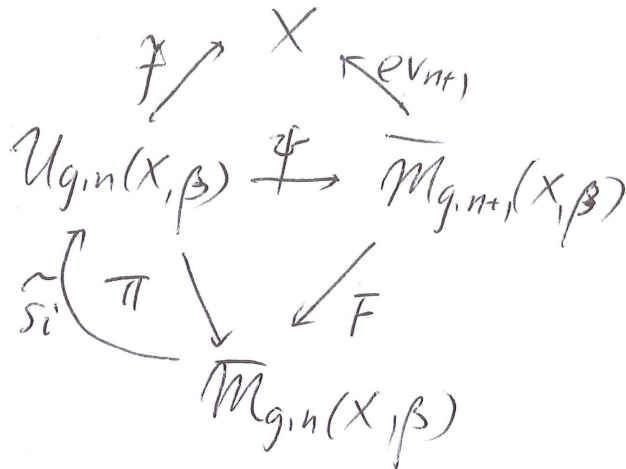 X
f ev_{n+1}
U_{g,n}(X,β) ψ \overline{M}_{g,n+1}(X,β)
\tilde{s}_i π F
\overline{M}_{g,n}(X,β)